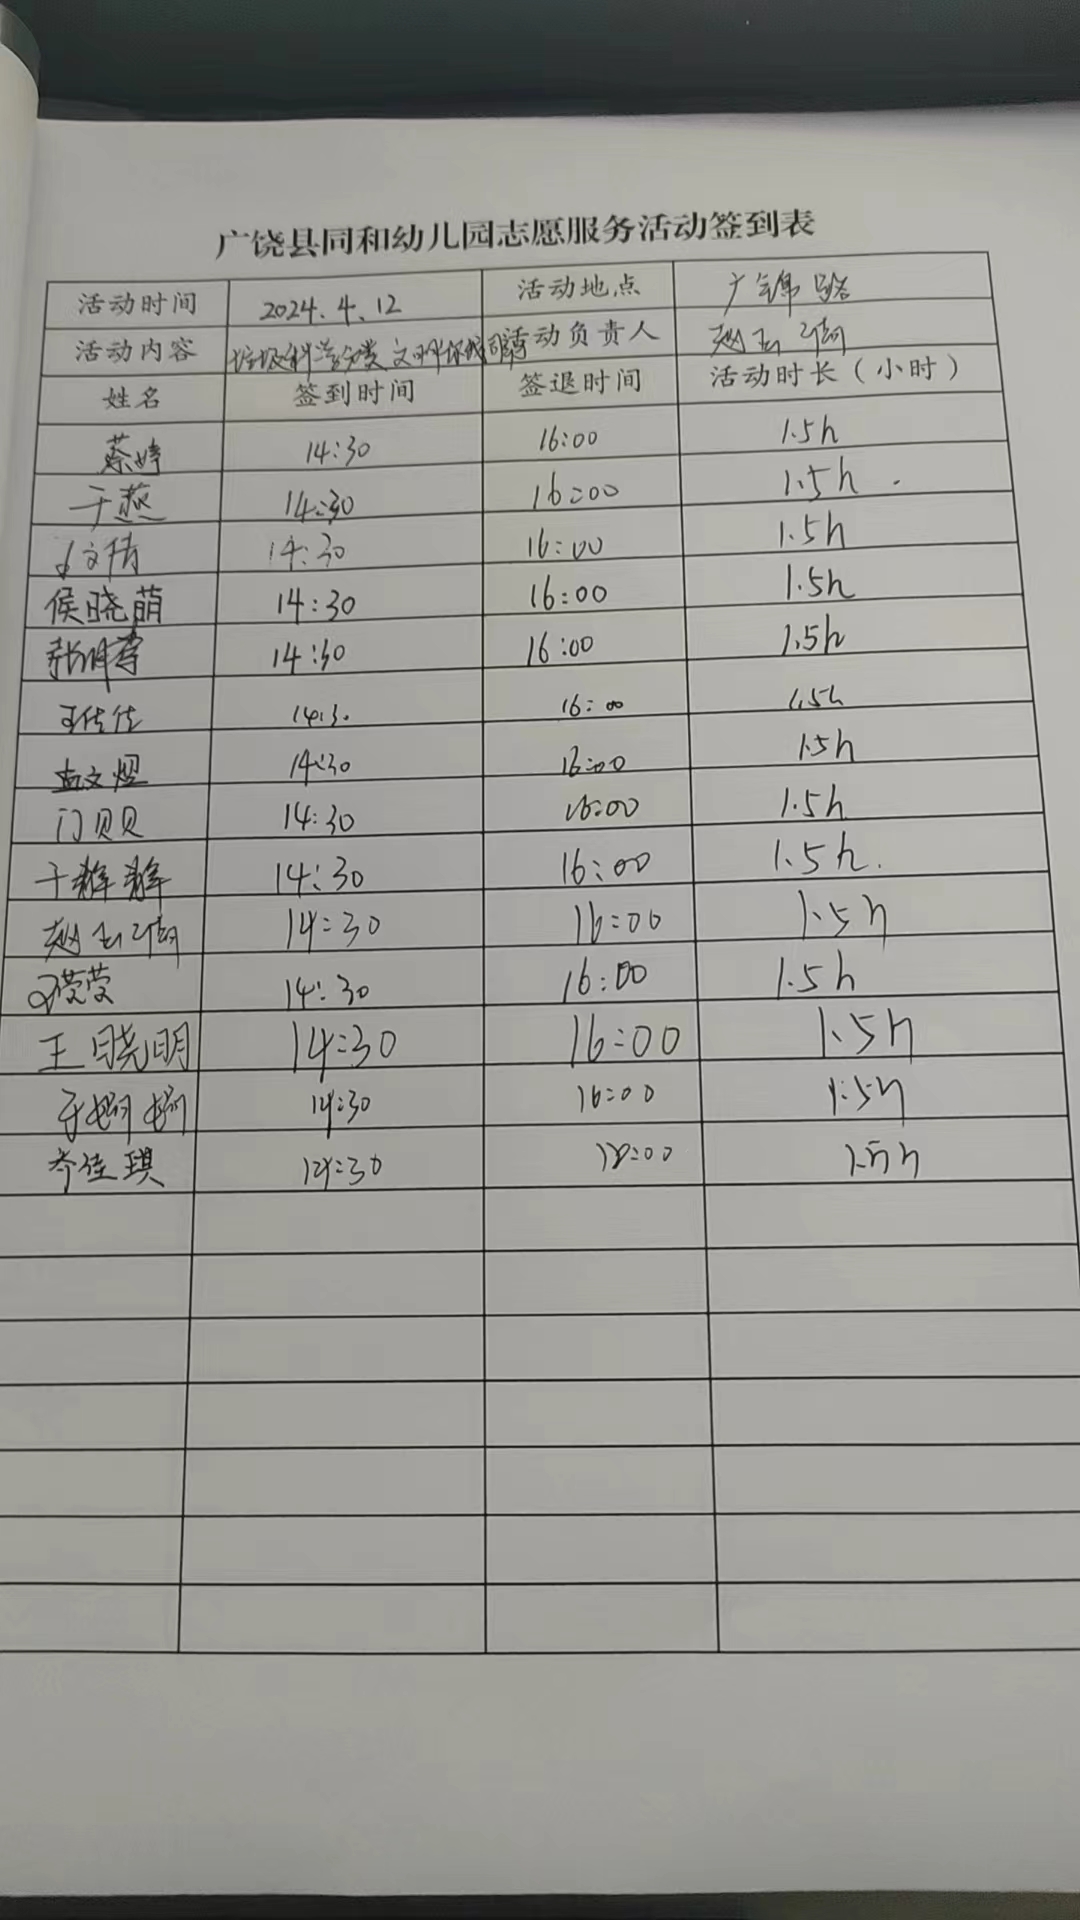 广饶县同和幼儿园志愿服务活动签到表
活动时间 2024.4.12 活动地点 广锦路
活动内容 垃圾科学分类 文明你我同行 活动负责人 赵玉湖
姓名 签到时间 签退时间 活动时长（小时）
蔡婷 14:30 16:00 1.5h
于燕 14:30 16:00 1.5h
文倩 14:30 16:00 1.5h
侯晓萌 14:30 16:00 1.5h
张 14:30 16:00 1.5h
王佳佳 14:3. 16:00 1.5h
孟文煜 14:30 16:00 1.5h
门贝贝 14:30 16:00 1.5h
于辉辉 14:30 16:00 1.5h
赵玉湖 14:30 16:00 1.5h
莹莹 14:30 16:00 1.5h
王晓明 14:30 16:00 1.5h
于娜娜 14:30 16:00 1.5h
佳琪 14:30 :00 1.5h